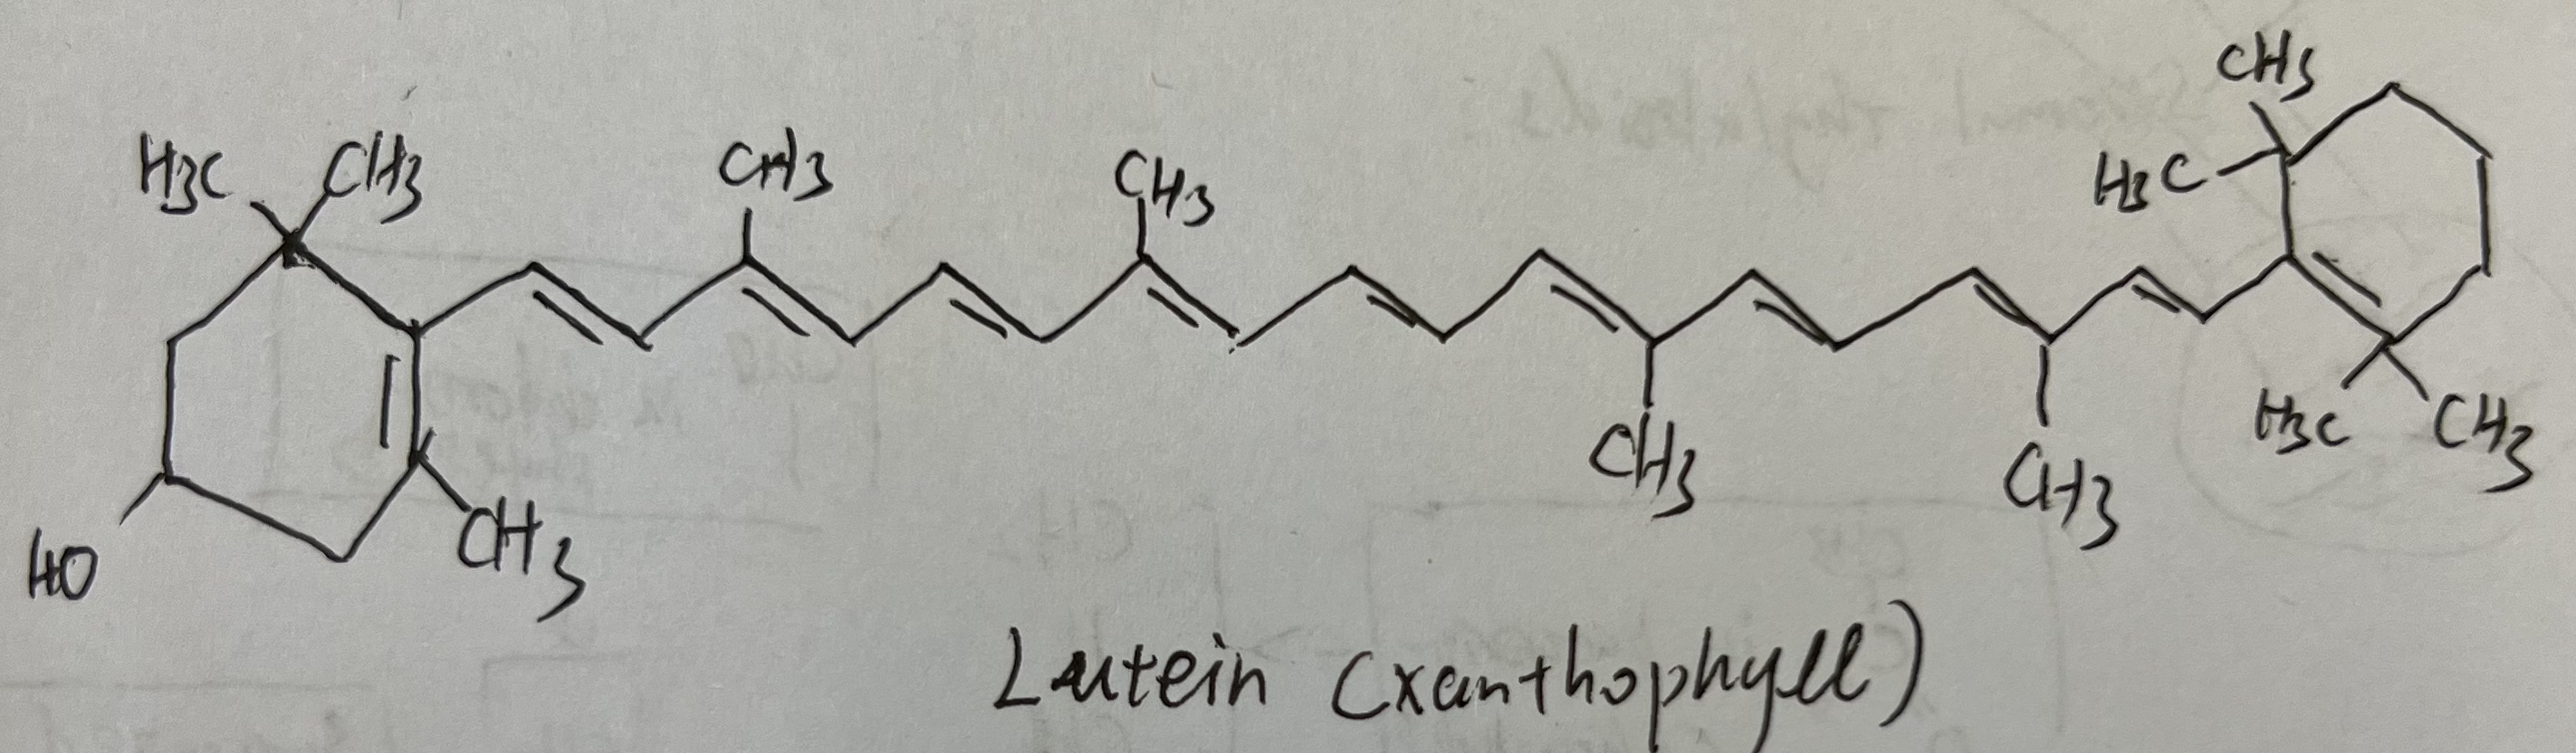 CH3
H3C CH3 CH3 CH3 H3C
HO CH3 CH3 CH3 H3C CH3
Lutein (xanthophyll)